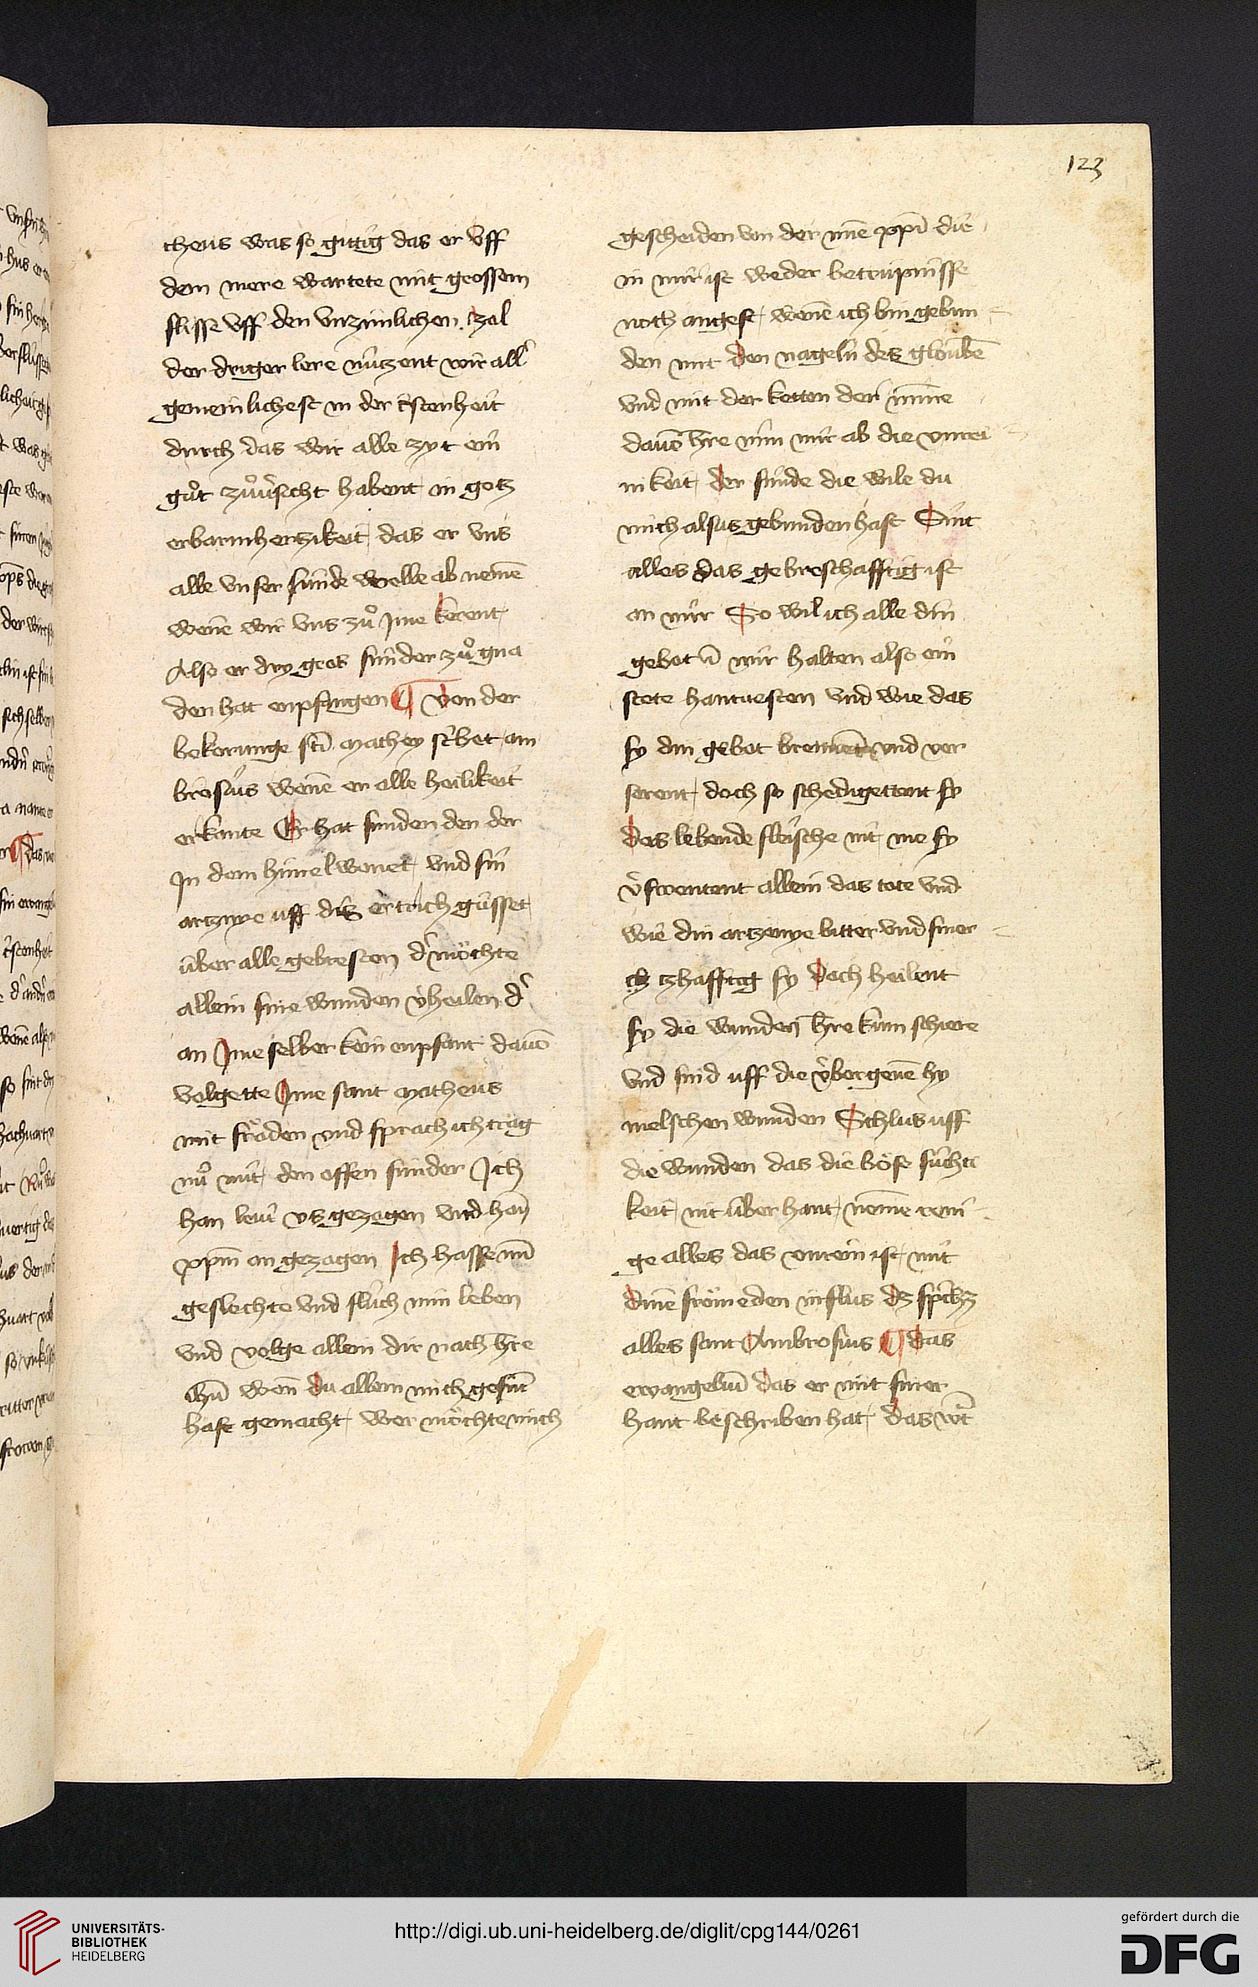 123
theus was so gutig das er vff
dem mere wartete mit grossem
flisse vff den vnzimlichen zal
der driger lere nützent wir all'
gemeinlichest in der c̄stenheit
durch das wir alle zyt ein
gůt zůuͦsicht habent in gotz
erbarmhertzikeit das er vns
alle vnser sünde welle ab nemē
wenē wir vns zů Jme kerent
Also er dry gros sünder zů gna
den hat enpfangen ¶ Von der
bekerunge scī Mathey sc̄bet am
brosius wenē er alle heilikeit
erkante Er hat funden den der
Jn dem himel wonet vnd sin
artznye uff dis ertrich güsset
über alle gebresten d' möchte
allein sine wunden v̓heilen d'
an Jme selber kein enpfant dauō
volgette Jme sant Matheus
mit fröden vnd sprach ich trag
nů nüt den offen sünder Jch
han leui vsgezogen vnd han
xpm̄ an gezogen Jch hasse mī
geslechte vnd fluch min leben
vnd volge allein dir nach hre
ihū wen̄ du allein mich gesunt
hast gemacht wer möchte mich
gescheiden von der mīe xpī die
in mir ist weder betrüpnisse
noth angest wenē ich bin gebun
den mit den nageln des gloubē
vnd mit der ketten der minne
dauō hre nim mir ab die vnrei
nikeit der sünde die wile du
mich alsus gebunden hast Sint
alles das gebresthafftig ist
an mir So wil ich alle din
gebot ī mir halten also ein
stete hantuesten vnd wie das
sy din gebot brennet vnd ver
serent doch so schedigettent sy
des lebende fleische nit me sy
v̓swentent allein das tote vnd
wie din artzenye bitter vnd smer
tzhafftig sy doch heilent
sy die wunden hre kum schiere
vnd snid uff die v̓borgenē hy
melschen wunden Schlus uff
die wunden das die böse sücht
keit nit über hant nēme reini
ge alles das vnrein ist mit
dinē frömeden influs dz sp̄chz
alles sant Ambrosius ¶ das
ewangeliū das er mit siner
hant beschriben hat das wt̄
UNIVERSITÄTS-
BIBLIOTHEK
HEIDELBERG
http://digi.ub.uni-heidelberg.de/diglit/cpg144/0261
gefördert durch die
DFG